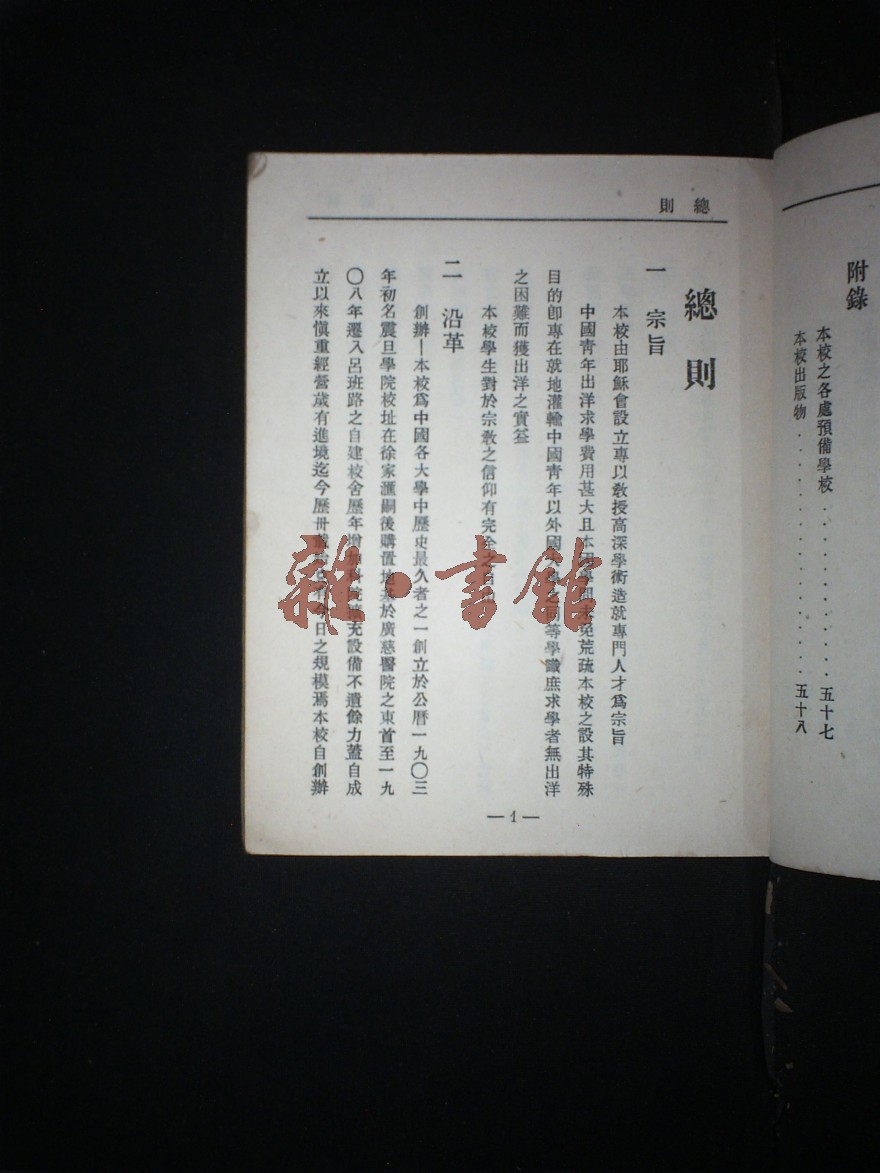 附錄
本校之各處預備學校．．．．．．．．．．．．五十七
本校出版物．．．．．．．．．．．．．．．．五十八
總則
總則
一 宗旨
本校由耶穌會設立專以敎授高深學術造就專門人才爲宗旨
中國青年出洋求學費用甚大且本國學問未免荒疏本校之設其特殊
目的卽專在就地灌輸中國青年以外國大學之同等學識庶求學者無出洋
之困難而獲出洋之實益
本校學生對於宗敎之信仰有完全之自由
二 沿革
創辦—本校爲中國各大學中歷史最久者之一創立於公曆一九〇三
年初名震旦學院校址在徐家滙嗣後購置地基於廣慈醫院之東首至一九
〇八年遷入呂班路之自建校舍歷年增加科院擴充設備不遺餘力蓋自成
立以來愼重經營歲有進境迄今歷卅今日之規模焉本校自創辦
—1—
雜·書館